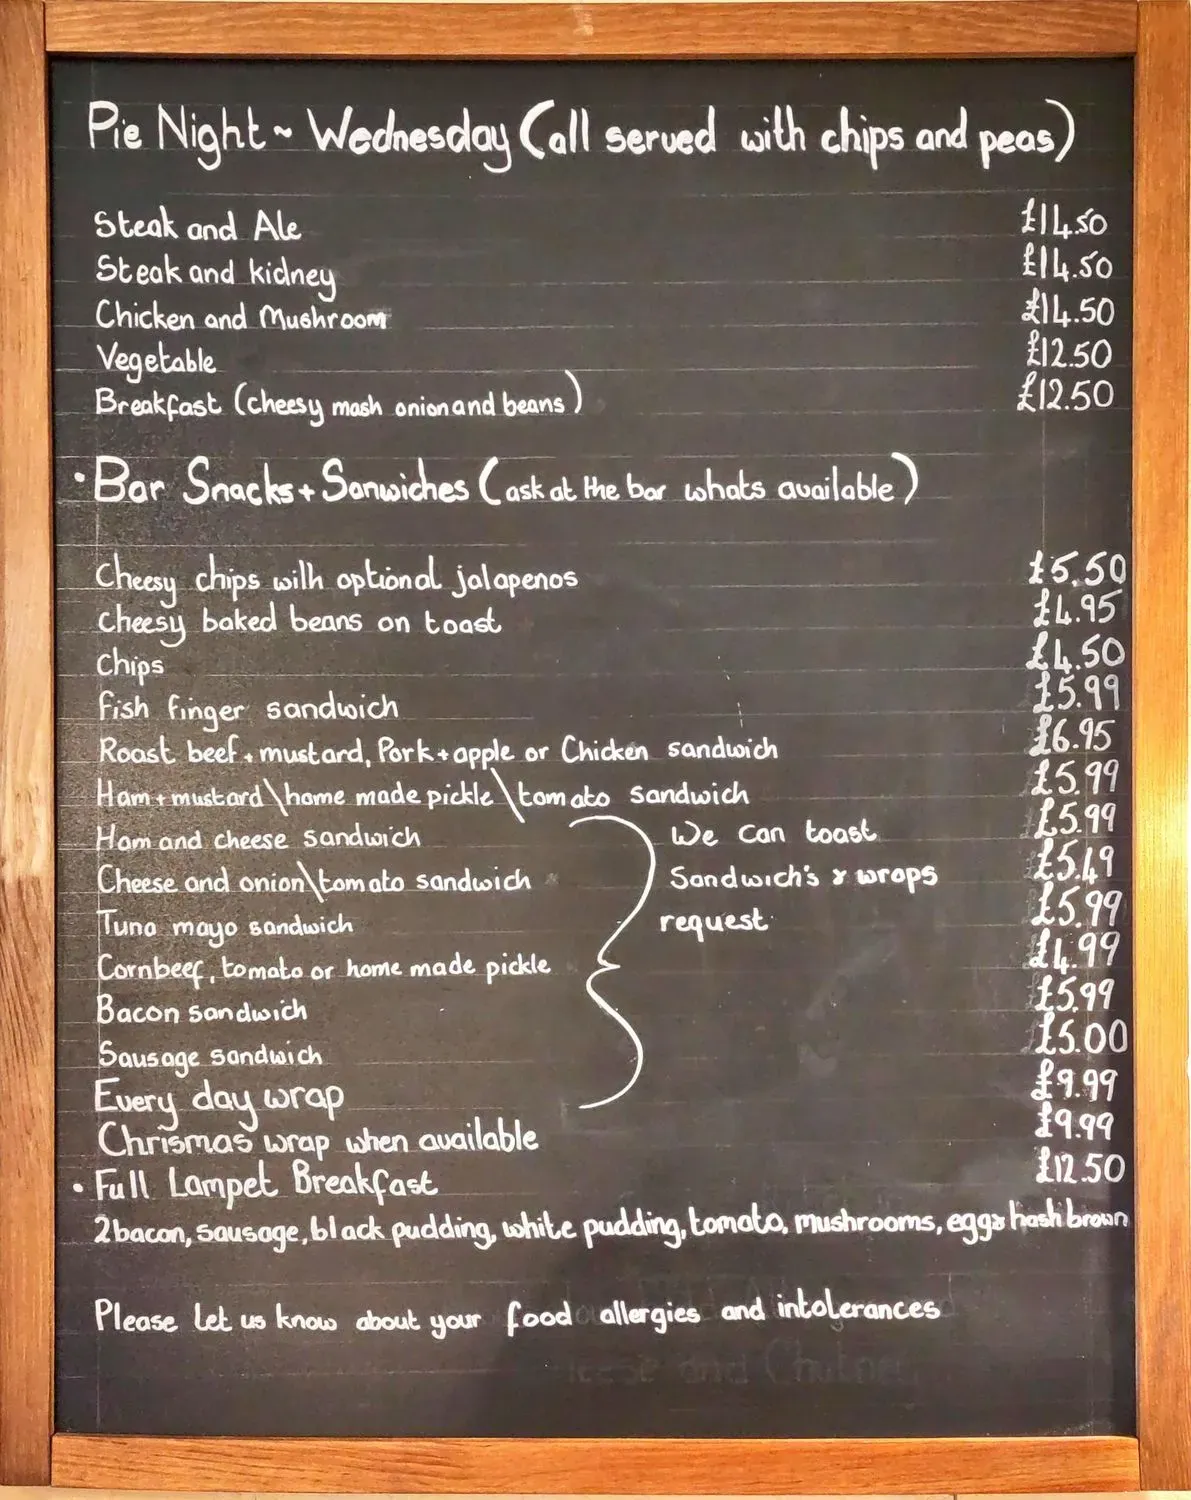 Pie Night ~ Wednesday (all served with chips and peas)
Steak and Ale £14.50
Steak and kidney £14.50
Chicken and Mushroom £14.50
Vegetable £12.50
Breakfast (cheesy mash onion and beans) £12.50
• Bar Snacks + Sanwiches (ask at the bar whats available)
Cheesy chips with optional jalapenos £5.50
Cheesy baked beans on toast £4.95
Chips £4.50
Fish finger sandwich £5.99
Roast beef + mustard, Pork + apple or Chicken sandwich £6.95
Ham + mustard \ home made pickle \ tomato sandwich £5.99
Ham and cheese sandwich £5.99
Cheese and onion \ tomato sandwich £5.49
Tuna mayo sandwich £5.99
Cornbeef, tomato or home made pickle £4.99
Bacon sandwich £5.99
Sausage sandwich £5.00
Every day wrap £9.99
Chrismas wrap when available £9.99
We can toast
Sandwich's & wraps
request
• Full Lampet Breakfast £12.50
2 bacon, sausage, black pudding, white pudding, tomato, mushrooms, egg & hash brown
Please let us know about your food allergies and intolerances